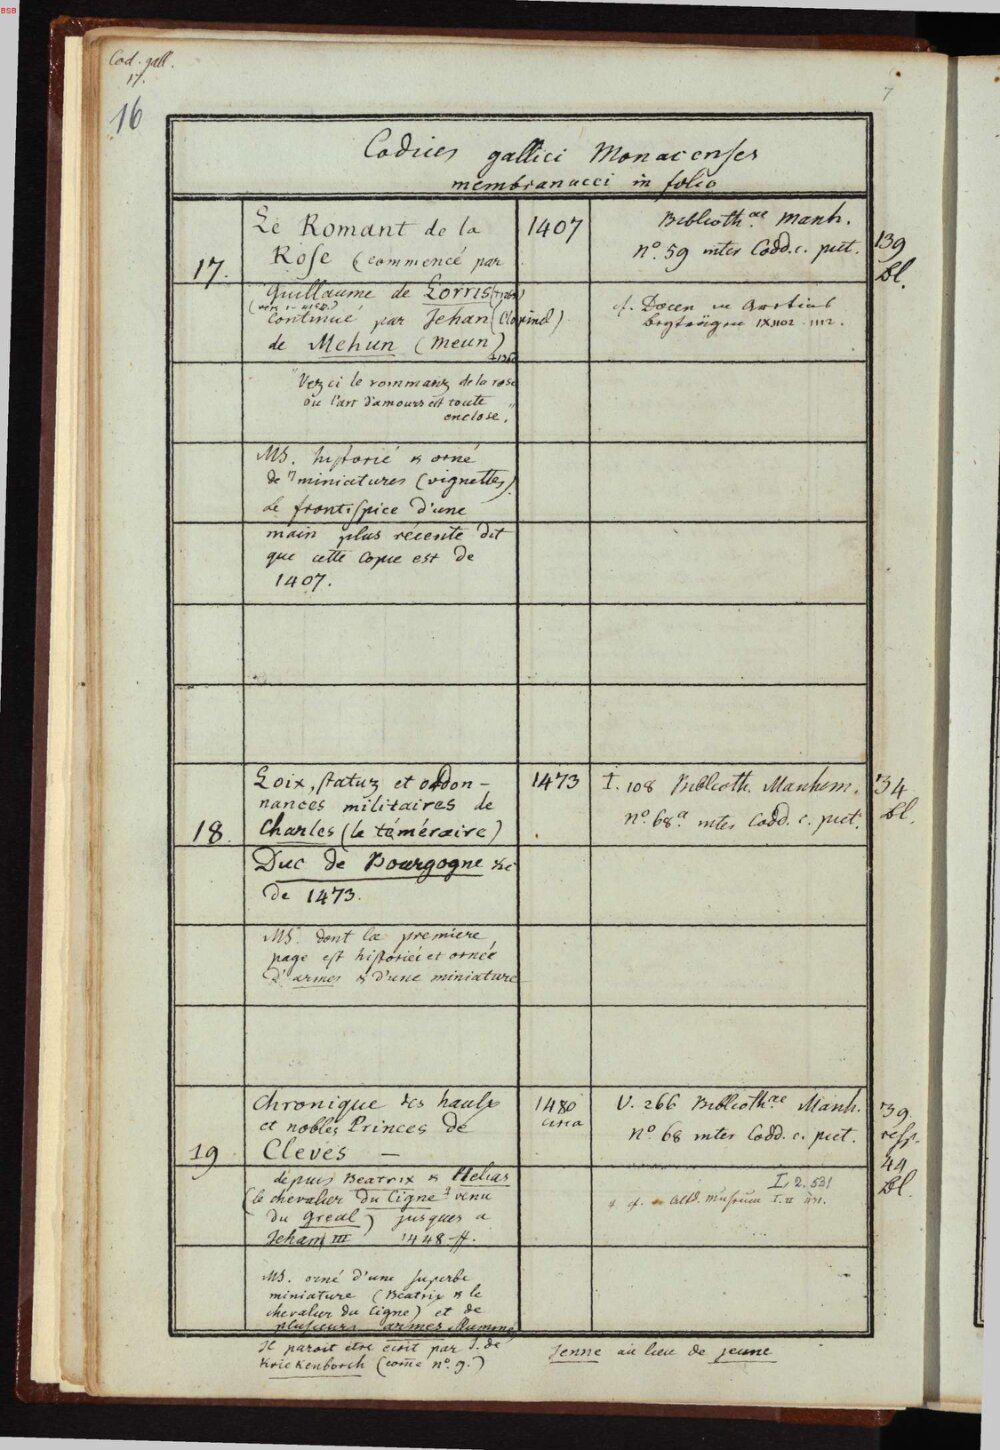 BSB
Cod. gall.
17.
16
7
Codices gallici Monacenses
membranacei in folio
17.
Le Romant de la
Rose (commencé par
Guillaume de Lorris
continué par Jehan (Clopinel)
de Mehun (Meun)
"Vez ci le rommanz de la rose
ou l'art d'amours est toute
enclose."
MS. historié & orné
de miniatures (vignettes).
Le frontispice d'une
main plus récente dit
que cette copie est de
1407.
1407
Biblioth.ae Manh.
nº. 59 inter Codd. c. pict.
cf. Docen in Aretins
Beyträgen
139
Bl.
18.
Loix, statuz et ordon-
nances militaires de
Charles (le téméraire)
Duc de Bourgogne &c
de 1473.
MS. dont la premiere
page est historiée et ornée
d'armes & d'une miniature
1473
I. 108 Biblioth. Manhem.
nº. 68a. inter Codd. c. pict.
34
Bl.
19
Chronique des haulx
et nobles Princes de
Cleves —
depuis Beatrix & Helias
(le chevalier du Cigne venu
du Greal) jusques a
Jehan III 1448 ff.
MS. orné d'une superbe
miniature (Beatrix & le
chevalier du Cigne) et de
plusieurs armes
Il paroit être ecrit par J. de
Krickenborch (come nº. 9.)
1480
circa
V. 266 Biblioth.ae Manh.
nº. 68 inter Codd. c. pict.
I, 2. 531
cf. altd. Museum I. II
39
resp.
44
Bl.
Jenne au lieu de jeune